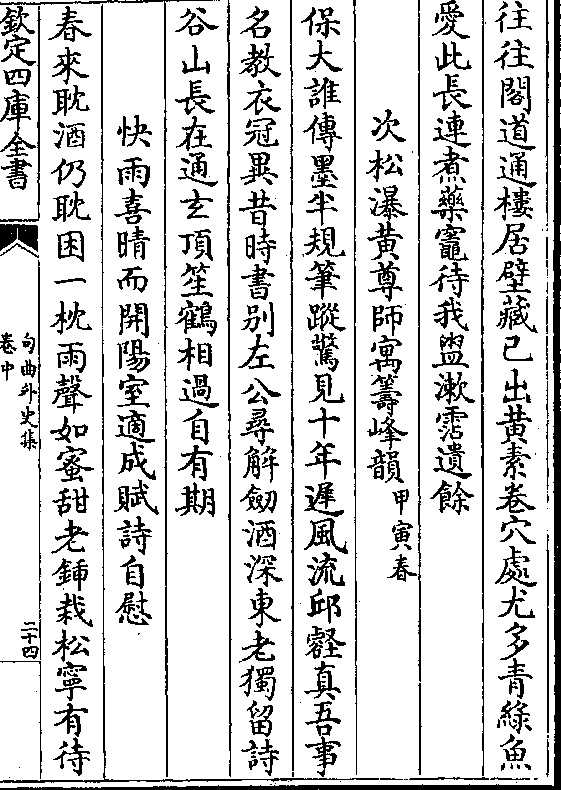 往往閣道通樓居壁藏已出黄素卷穴處尤多青綠魚
愛此長連煮藥竈待我盥漱霑遺餘
次松瀑黄尊師寓籌峰韻甲寅春
保大誰傳墨半規筆蹤驚見十年遲風流邱壑真吾事
名教衣冠異昔時書别左公尋解劒酒深東老獨留詩
谷山長在通玄頂笙鶴相過自有期
快雨喜晴而開陽室適成賦詩自慰
春來耽酒仍耽困一枕雨聲如蜜甜老鍤栽松寧有待
欽定四庫全書
句曲外史集
卷中
二十四